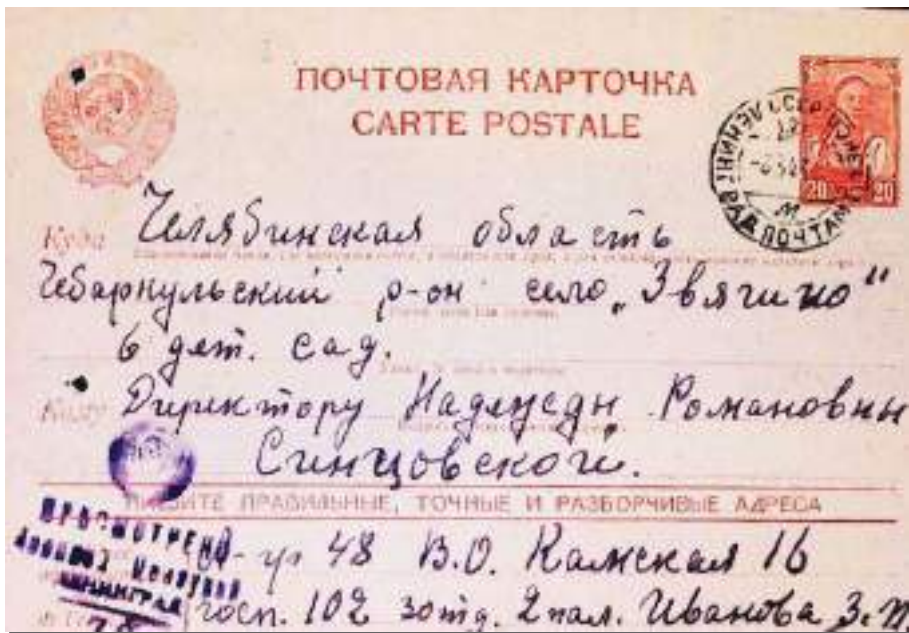 ПОЧТОВАЯ КАРТОЧКА
CARTE POSTALE
ЛЕНИНГРАД ПОЧТАМТ
20 20
Куда Челябинская область
Чебаркульский р-он село „Звягино"
6 дет. сад.
Кому Директору Надежды Романовны
Синцовской.
ПИШИТЕ ПРАВИЛЬНЫЕ, ТОЧНЫЕ И РАЗБОРЧИВЫЕ АДРЕСА
ПРОСМОТРЕНО
Военной Цензурой
ЛЕНИНГРАД
48 В.О. Камская 16
госп. 102 3 отд. 2 пал. Иванова З.П.